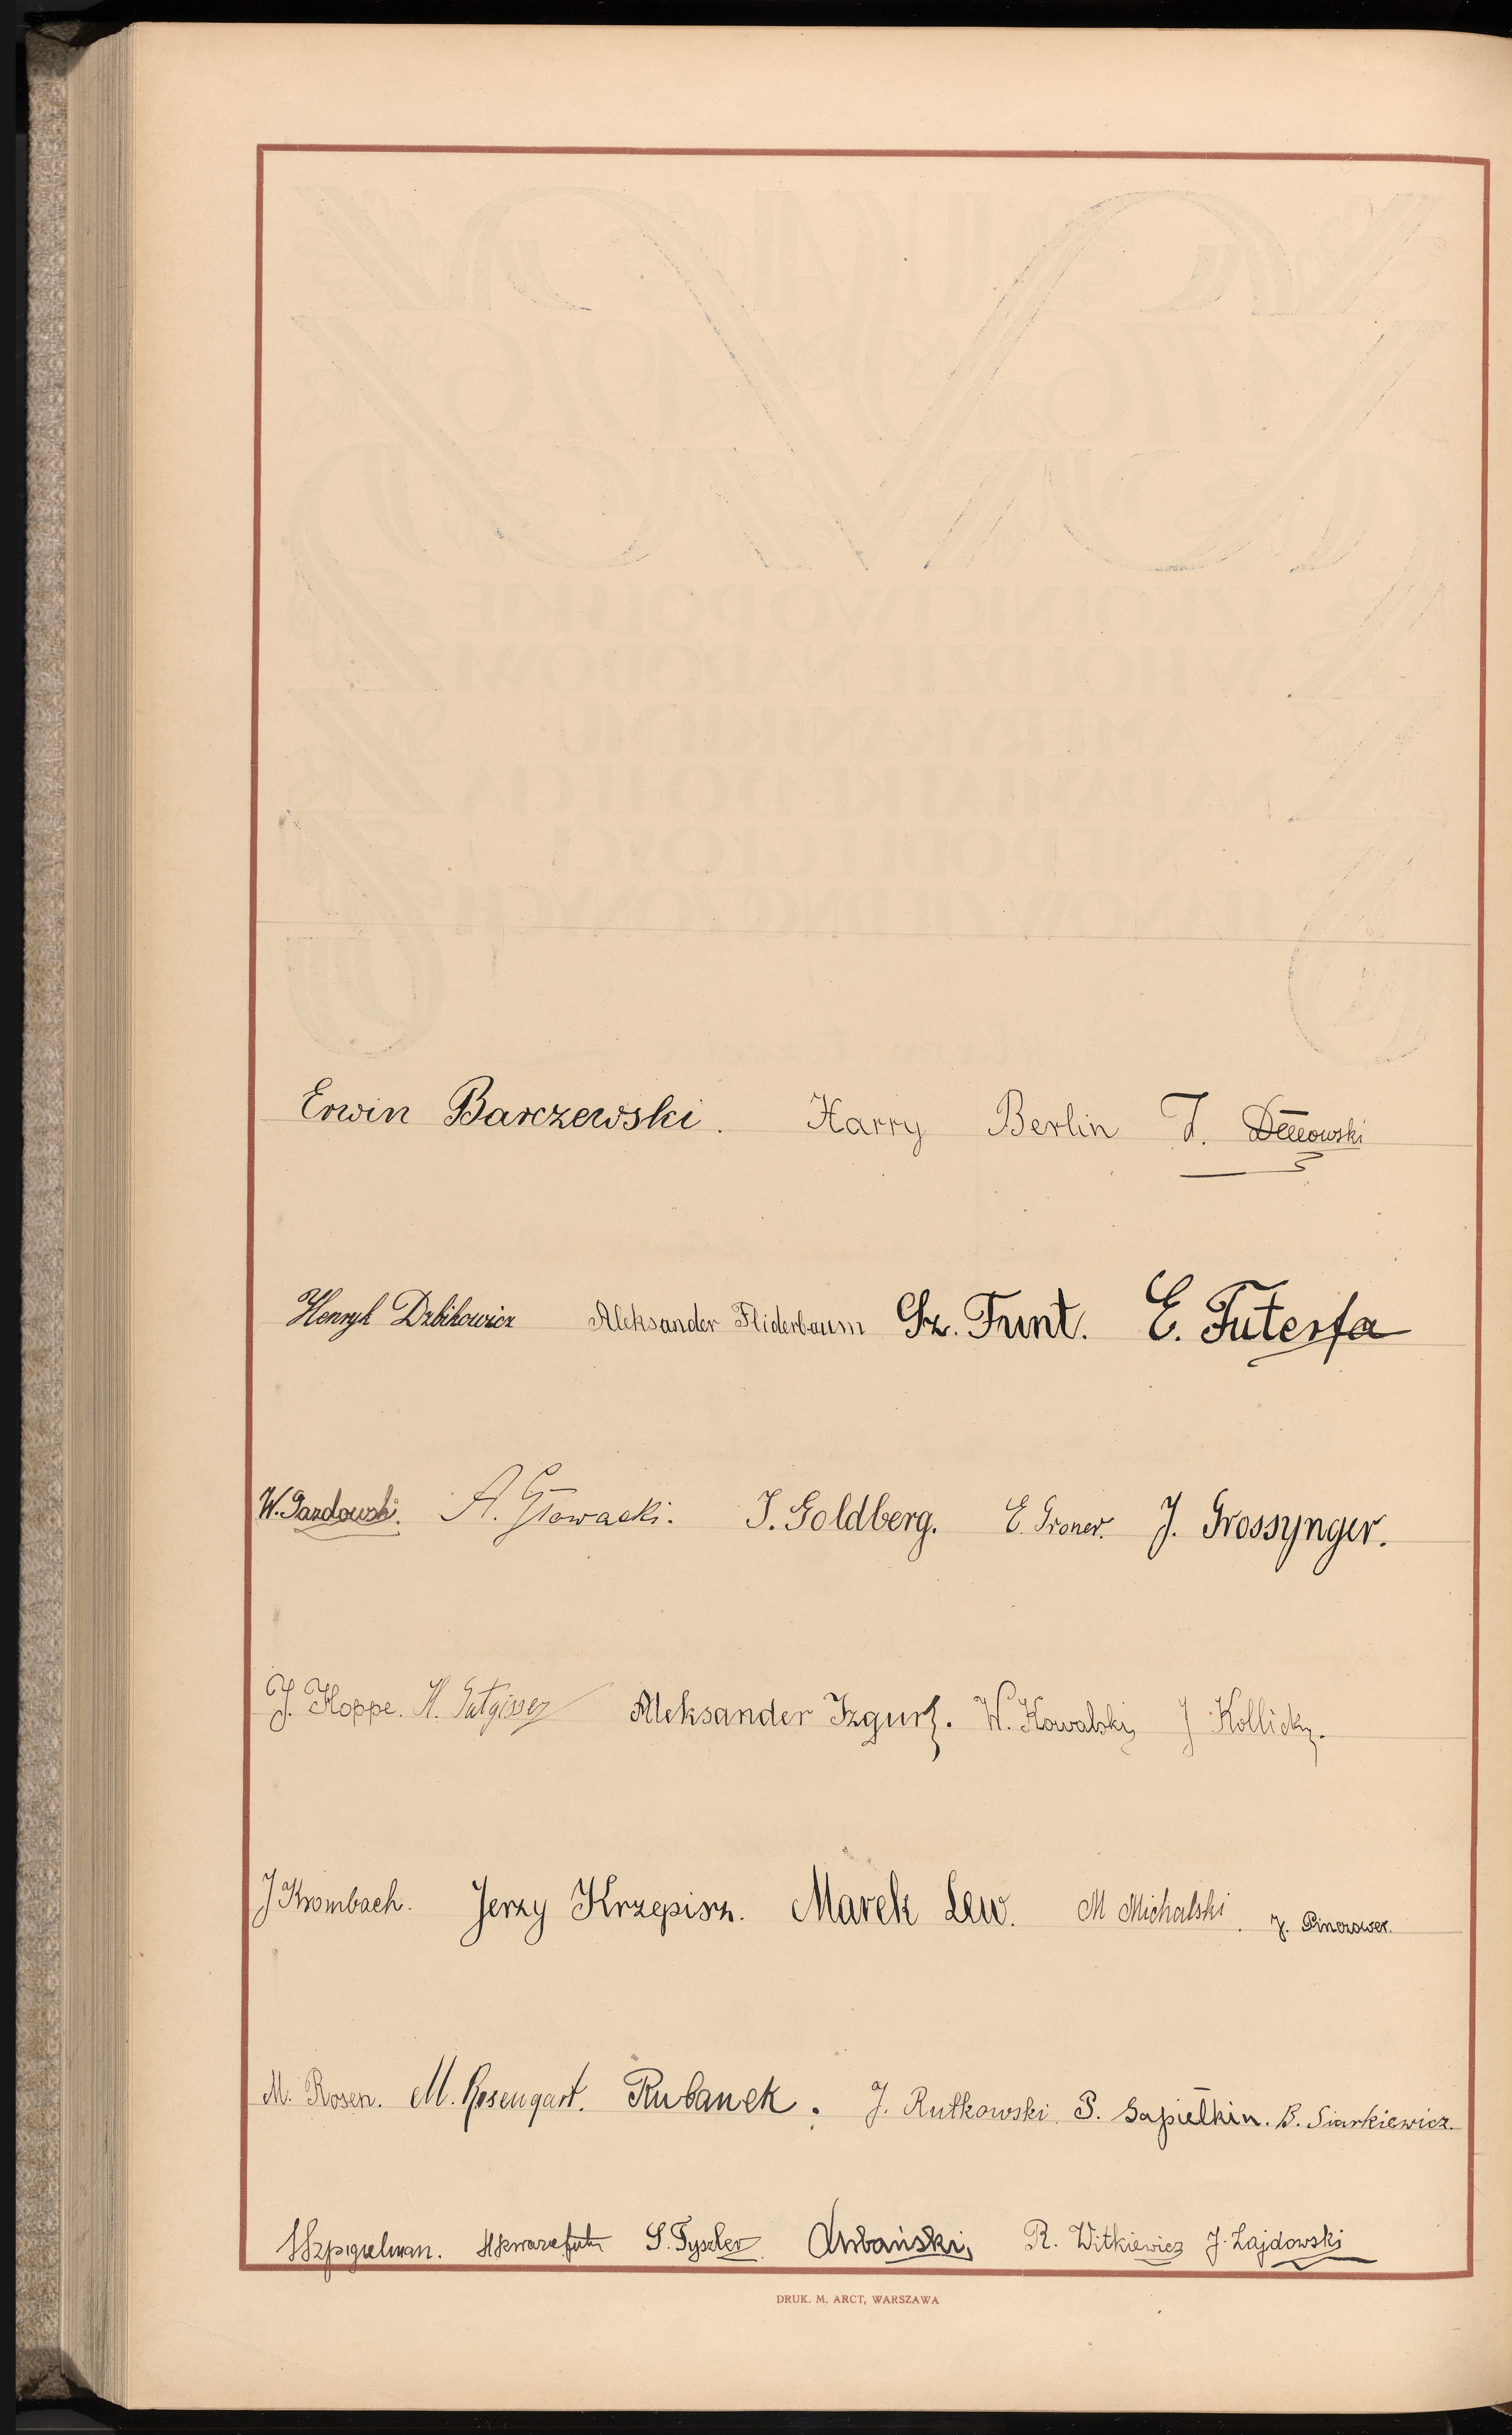 Erwin Barczewski. Harry Berlin J.
Henryk Dzbikowicz Aleksander Fliderbaum Sz. Funt. E. Futerfa
W. Gazdowski. A. Głowacki. J. Goldberg. E. Groner. J. Grossynger.
J. Hoppe. H. Aleksander Izgur. W. Kowalski J Kollicky.
J Krombach. Jerzy Krzepisz. Marek Lew. M Michalski. J. Pinczower.
M. Rosen. M. Rosengart. Rubanek. J. Rutkowski. S. Sapiełkin. B. Siarkiewicz.
Szpigielman. S. Tyszler Urbański, R. Witkiewicz J. Zajdowski
DRUK. M. ARCT, WARSZAWA